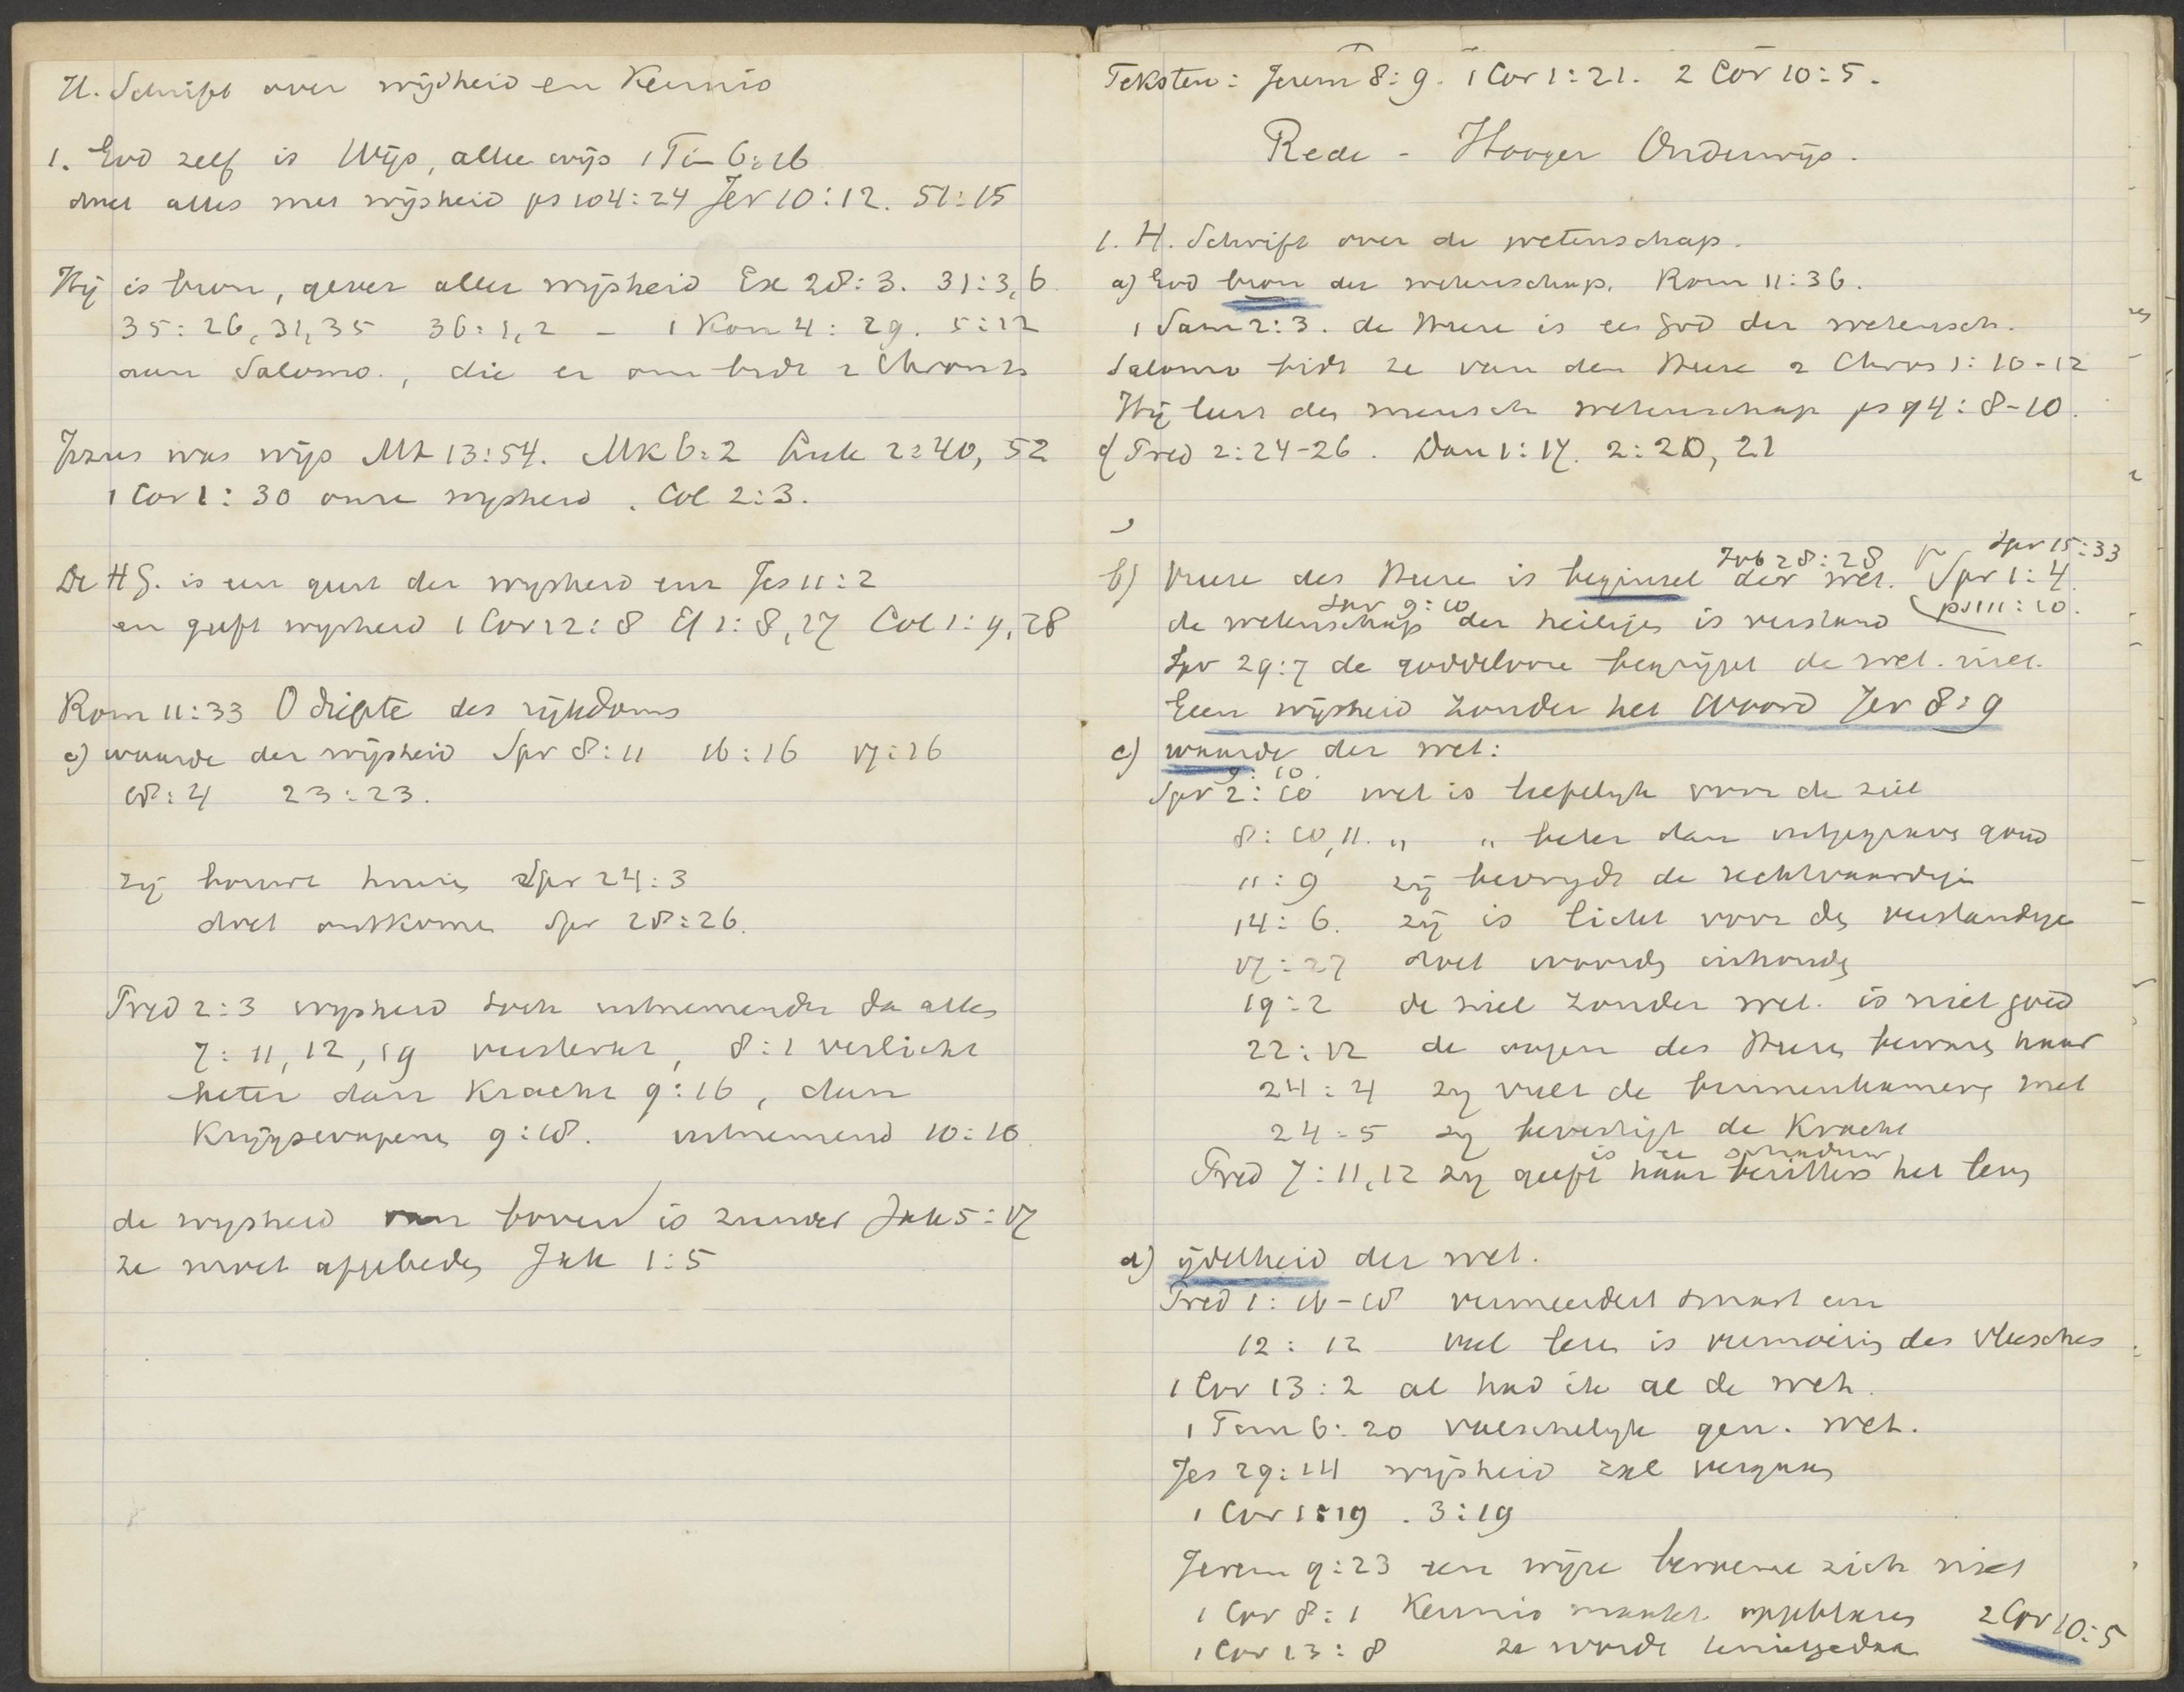 H. Schrift over wijsheid en Kennis
1. God zelf is Wijs, alleen wijs 1 Tim 6:16
doet alles met wijsheid ps 104:24 Jer 10:12. 51:15
Hij is bron, gever aller wijsheid Ex 28:3. 31:3,6.
35:26,31,35 36:1,2 - 1 Kon 4:29. 5:12
aan Salomo., die er om bidt 2 Chron
Jezus was wijs Mt 13:54. Mk 6:2 Luk 2:40, 52
1 Cor 1:30 onze wysheid. Col 2:3.
De HG. is een geest der wysheid enz Jes 11:2
en geeft wysheid 1 Cor 12:8 Ef 1:8,17 Col 1:9,28
Rom 11:33 O diepte des rijkdoms
c) waarde der wijsheid Spr 8:11 16:16 17:16
18:4 23:23.
zij bouwt huis Spr 24:3
doet ontkomen Spr 28:26.
Pred 2:3 wysheid uitnemender da alles
7:11,12,19 versterkt, 8:1 verlicht
beter dan Kracht 9:16, dan
Krijgswapenen 9:18. uitnemend 10:10
de wysheid van boven is zuiver Jak 5:17
ze moet afgebeden Jak 1:5
Teksten: Jerem 8:9. 1 Cor 1:21. 2 Cor 10:5.
Rede - Hooger Onderwijs.
1. H. Schrift over de wetenschap.
a) God bron der wetenschap. Rom 11:36.
1 Sam 2:3. de Heere is een God der wetensch.
Salomo bidt ze van den Heere 2 Chron 1:10-12
Hij leert den mensch wetenschap ps 94:8-10.
cf Pred 2:24-26. Dan 1:17. 2:20, 21
Job 28:28 Spr 15:33
b) Vreeze des Heeren is beginsel der wet. Spr 1:4
Spr 9:10 ps 111:10.
de wetenschap der heiligen is verstand
Spr 29:7 de goddelooze begrijpt de wet. niet.
Geen wijsheid zonder het Woord Jer 8:9
c) waarde der wet:
9:10.
Spr 2:10 wet is liefelijk voor de ziel
8:10,11. " " beter dan uitgegraven goud
11:9 zij bevrijdt de rechtvaardigen
14:6. zij is licht voor den verstandige
17:27 doet woorden inhouden
19:2 de ziel zonder wet. is niet goed
22:12 de oogen des Heeren bewaren haar
24:4 zy vult de binnenkamers met
24:5 zy bevestigt de Kracht
is een schaduw
Pred 7:11,12 zy geeft haar bezitters het leven
d) ijdelheid der wet.
Pred 1:16-18 vermeerdert smart enz
12:12 veel lezen is vermoeiing des vleesches
1 Cor 13:2 al had ik al de wet.
1 Tim 6:20 valschelijk gen. wet.
Jes 29:14 wijsheid zal vergaan
1 Cor 1:19. 3:19
Jerem 9:23 een wijze beroeme zich niet
1 Cor 8:1 Kennis maakt opgeblazen 2 Cor 10:5
1 Cor 13:8 ze wordt tenietgedaan